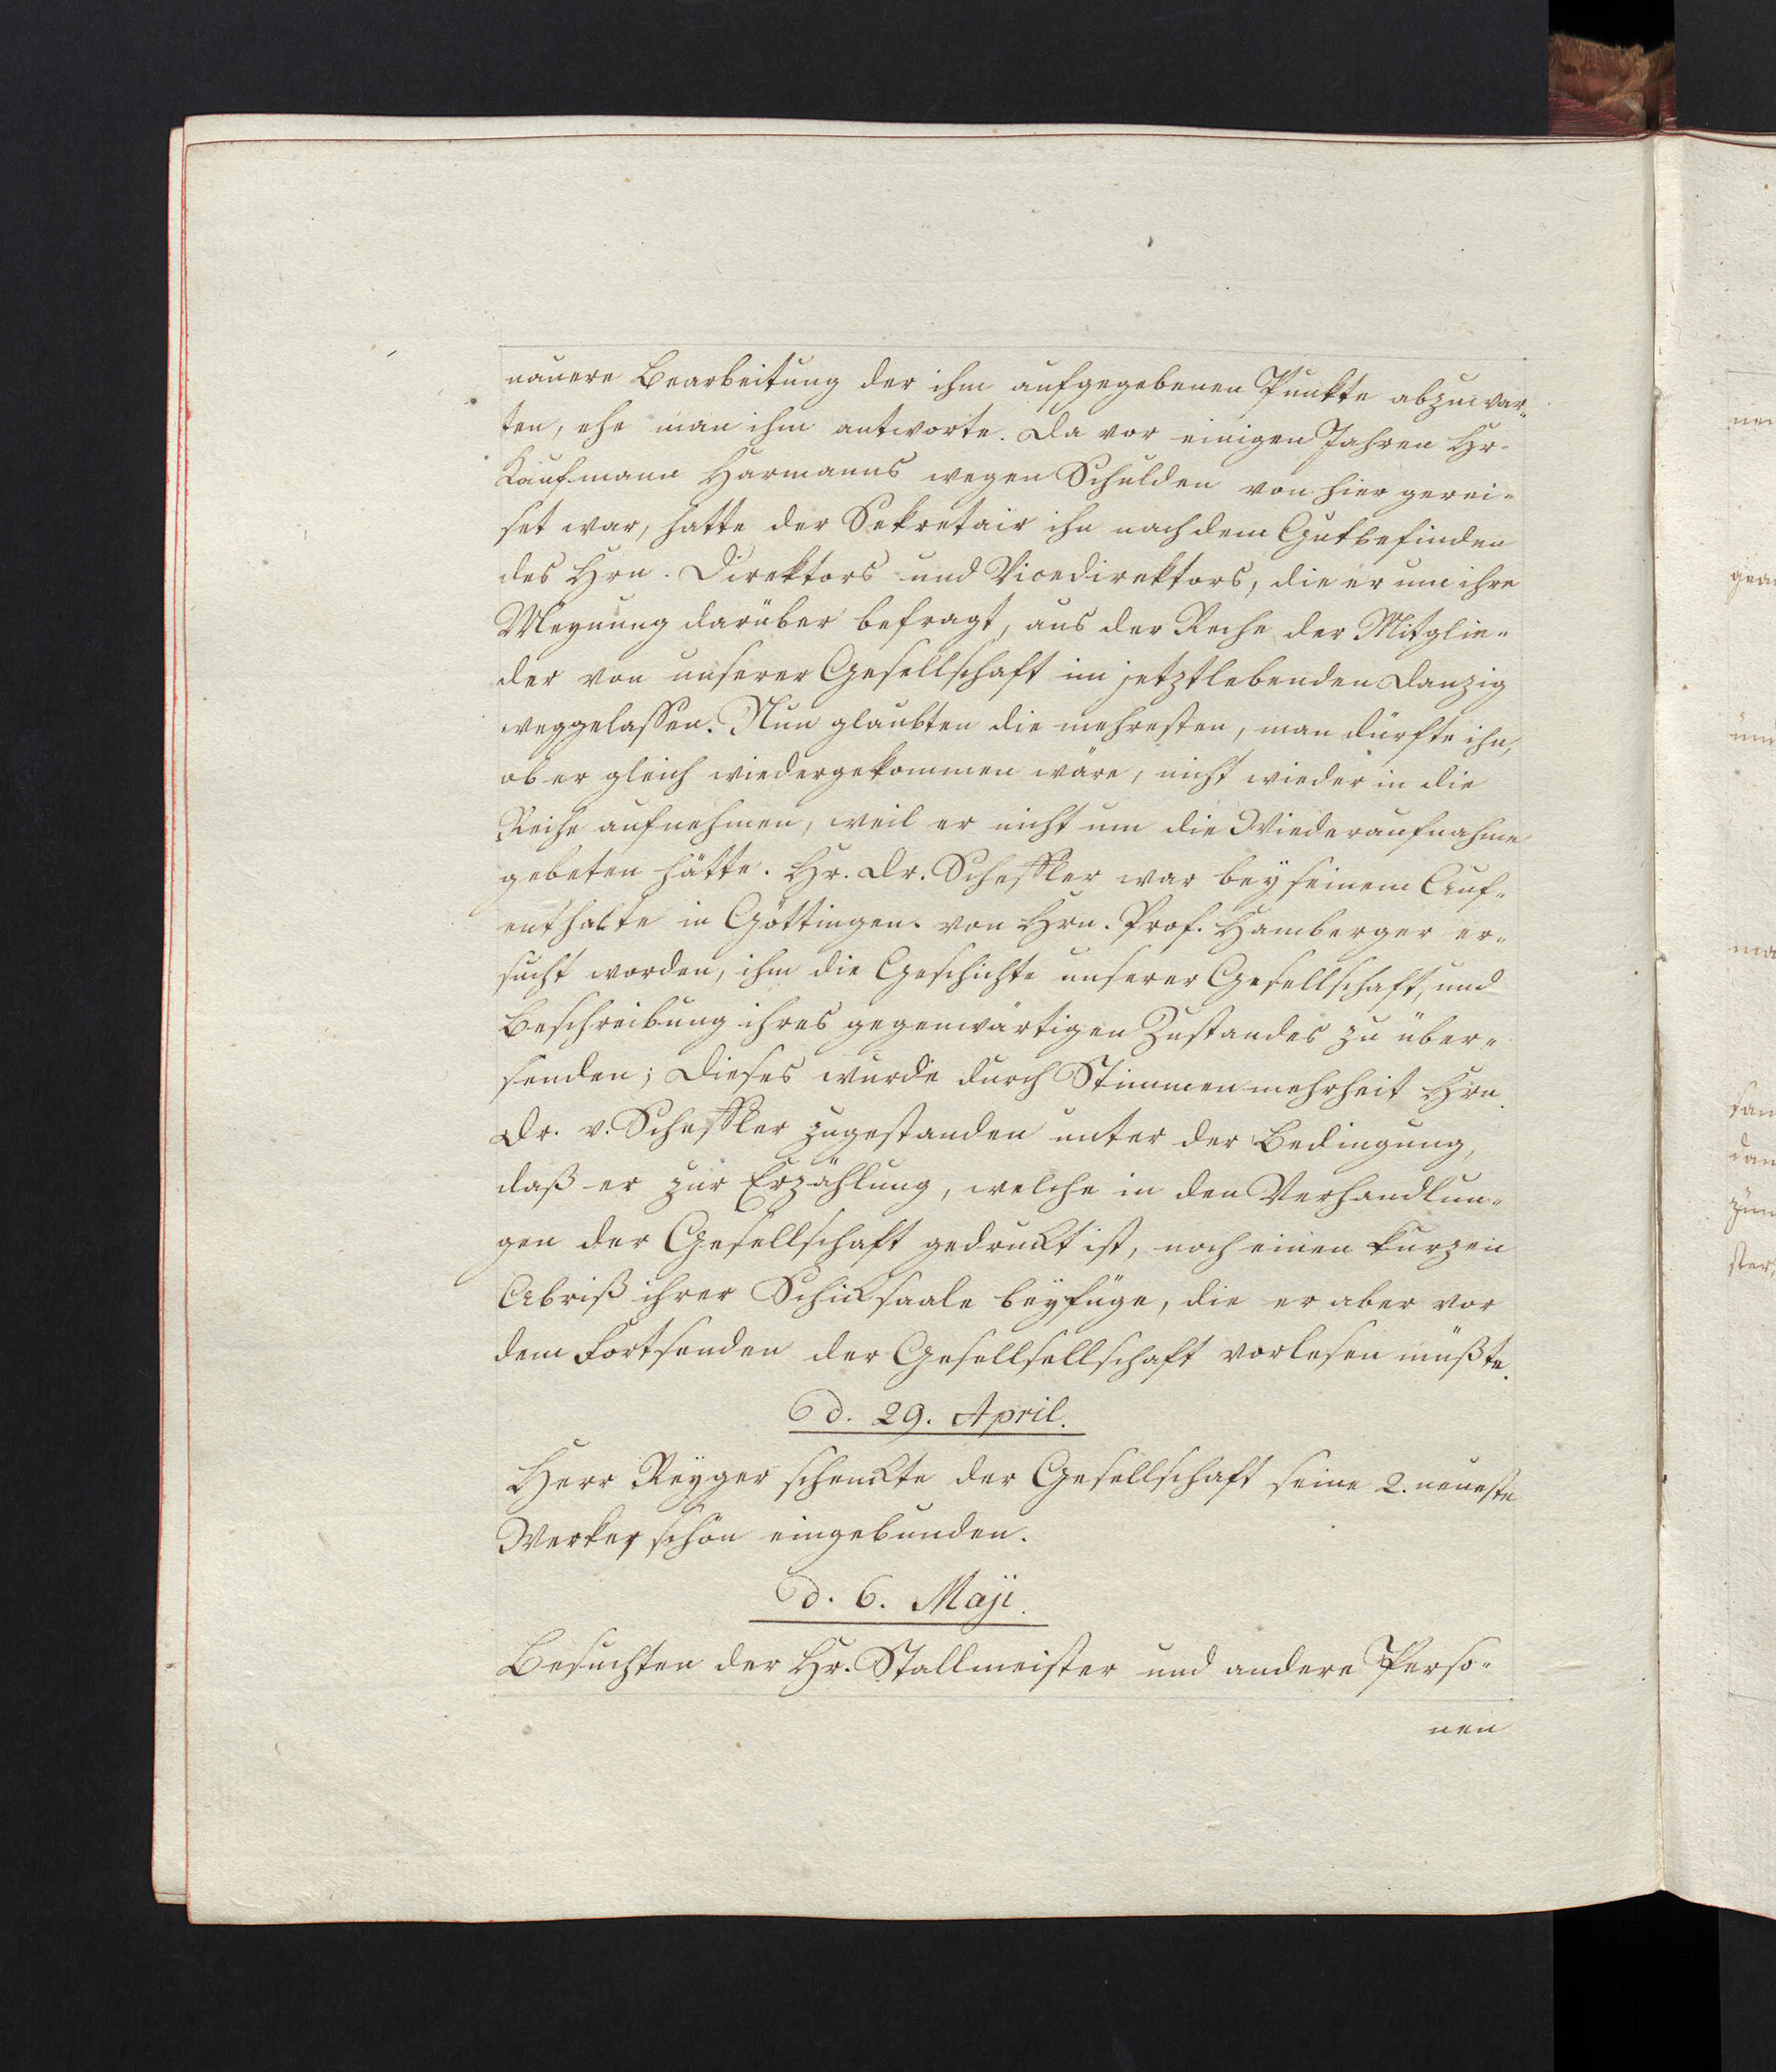 nauere Bearbeitung der ihm aufgegebenen Punkte abzuwar-
ten, ehe man ihm antworte. Da vor einigen Jahren Hr.
Kaufmann Harmanns wegen Schulden von hier gerei-
set war, hatte der Sekretair ihn nach dem Gutbefinden
des Hrn. Direktors und Vicedirektors, die er um ihre
Meynung darüber befragt, aus der Reihe der Mitglie-
der von unserer Gesellschaft im jetztlebenden Danzig
weggelassen. Nun glaubten die mehresten, man dürfte ihn,
ob er gleich wiedergekommen wäre, nicht wieder in die
Reihe aufnehmen, weil er nicht um die Wiederaufnahme
gebeten hätte. Hr. Dr. Scheffler war bey seinem Auf-
enthalte in Göttingen von Hrn. Prof. Hamberger er-
sucht worden, ihm die Geschichte unserer Gesellschaft, und
Beschreibung ihres gegenwärtigen Zustandes zu über-
senden; Dieses wurde durch Stimmenmehrheit Hrn.
Dr. v. Scheffler zugestanden unter der Bedingung,
daß er zur Erzählung, welche in den Verhandlun-
gen der Gesellschaft gedruckt ist, noch einen kurzen
Abriß ihrer Schicksaale beyfüge, die er aber vor
dem Fortsenden der Gesellsellschaft vorlesen müßte.
d. 29. April.
Herr Reyger schenckte der Gesellschaft seine 2. neueste
Werke, schön eingebunden.
d. 6. Maji.
Besuchten der Hr. Stallmeister und andere Perso-
nen